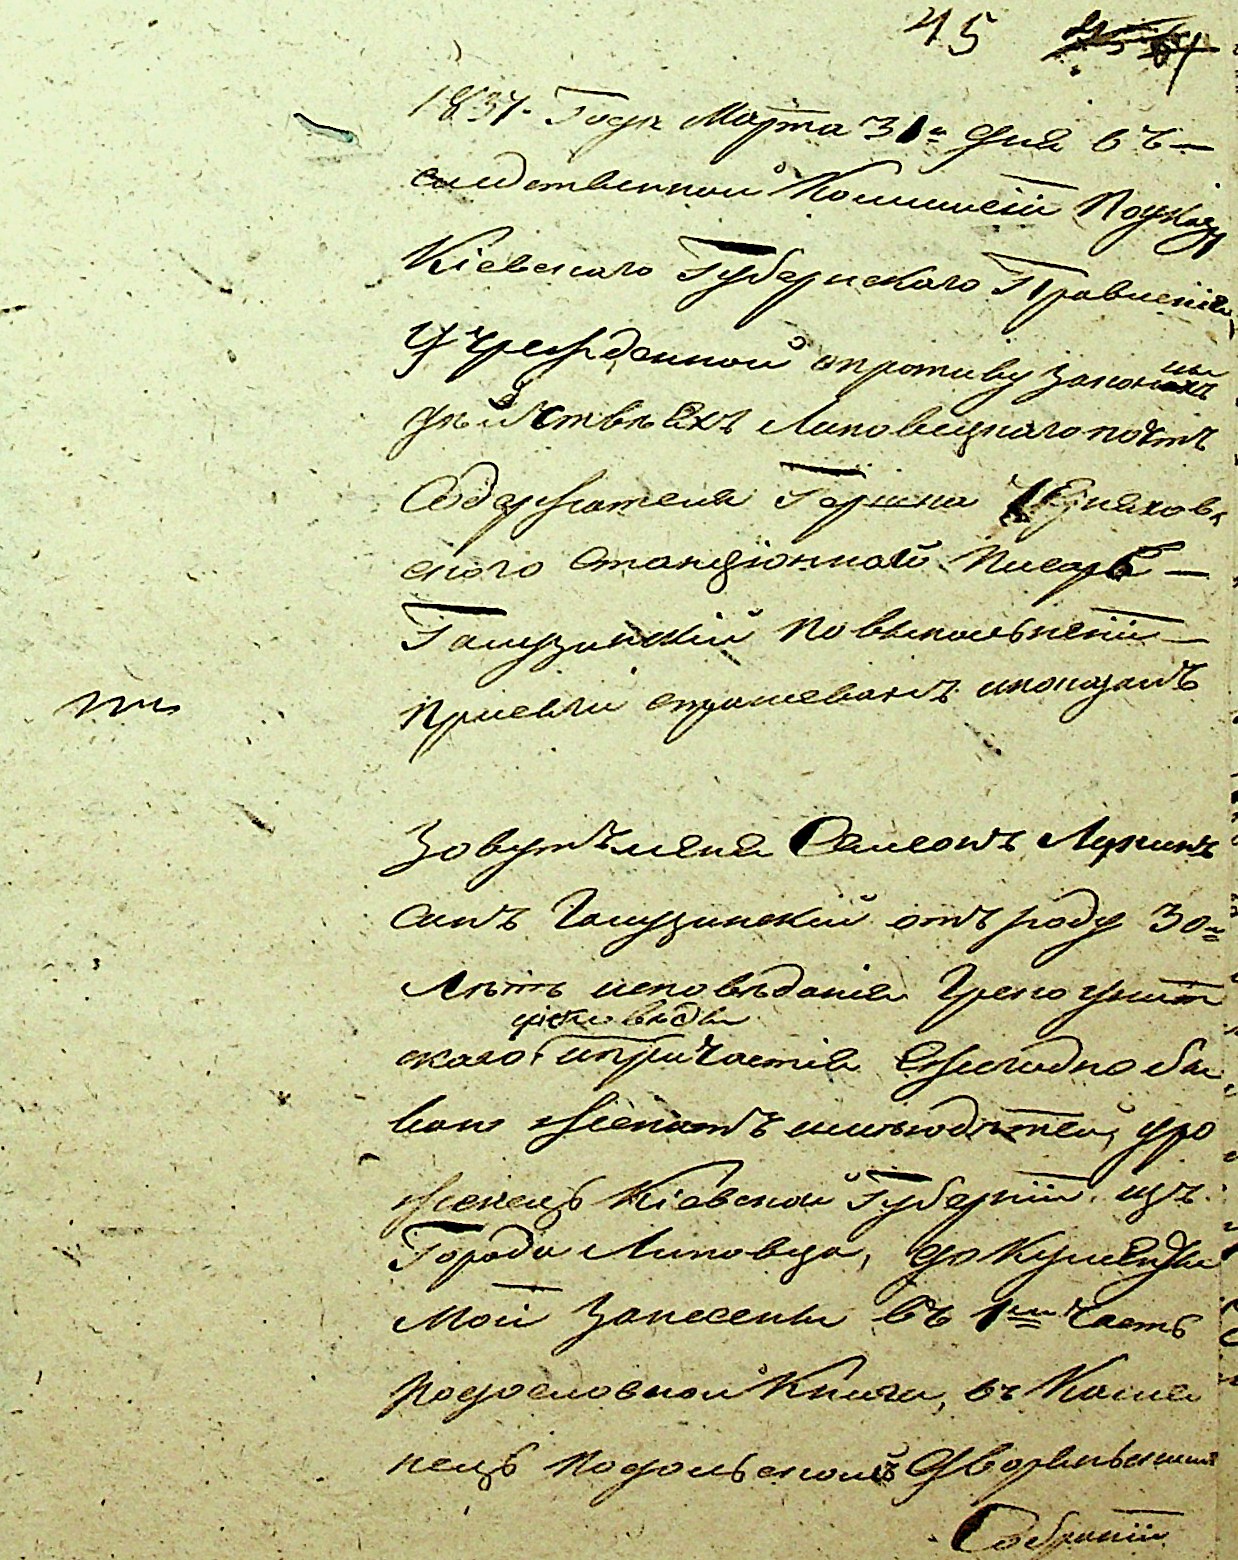 45
1837. Года Марта 31го дня въ
следственной Коммисіи По указу
Кіевскаго Губернскаго Правленія,
Учрежденной опротиву законны
дѣйствіяхъ Липовецкаго почтъ
Содержателя Гершка
скаго станціонный писарь
Галузинскій по выполненіи
присяги спрашеванъ ипоказалъ
Зовутъ меня Семеонъ Лукинъ
сынъ Галузинскій отъ роду 30ть
Лѣтъ исповѣданія Грекоунит
исповѣди
скаго, ипричастія Ежегодно бы
ваю женатъ имѣю дѣтей, уро
женецъ Кіевской Губерніи изъ
Города Липовца, документы
Мои Занесены въ 1ю часть
родословной Книги, въ Каме
нецъ Подольскомъ Дворянскомъ
Собраніи